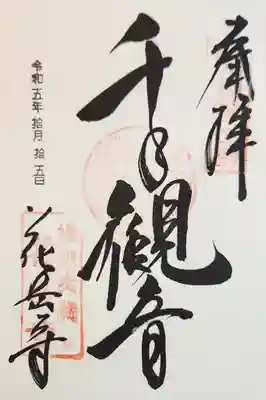 奉拝
千手観音
花岳寺
令和五年拾月拾五日